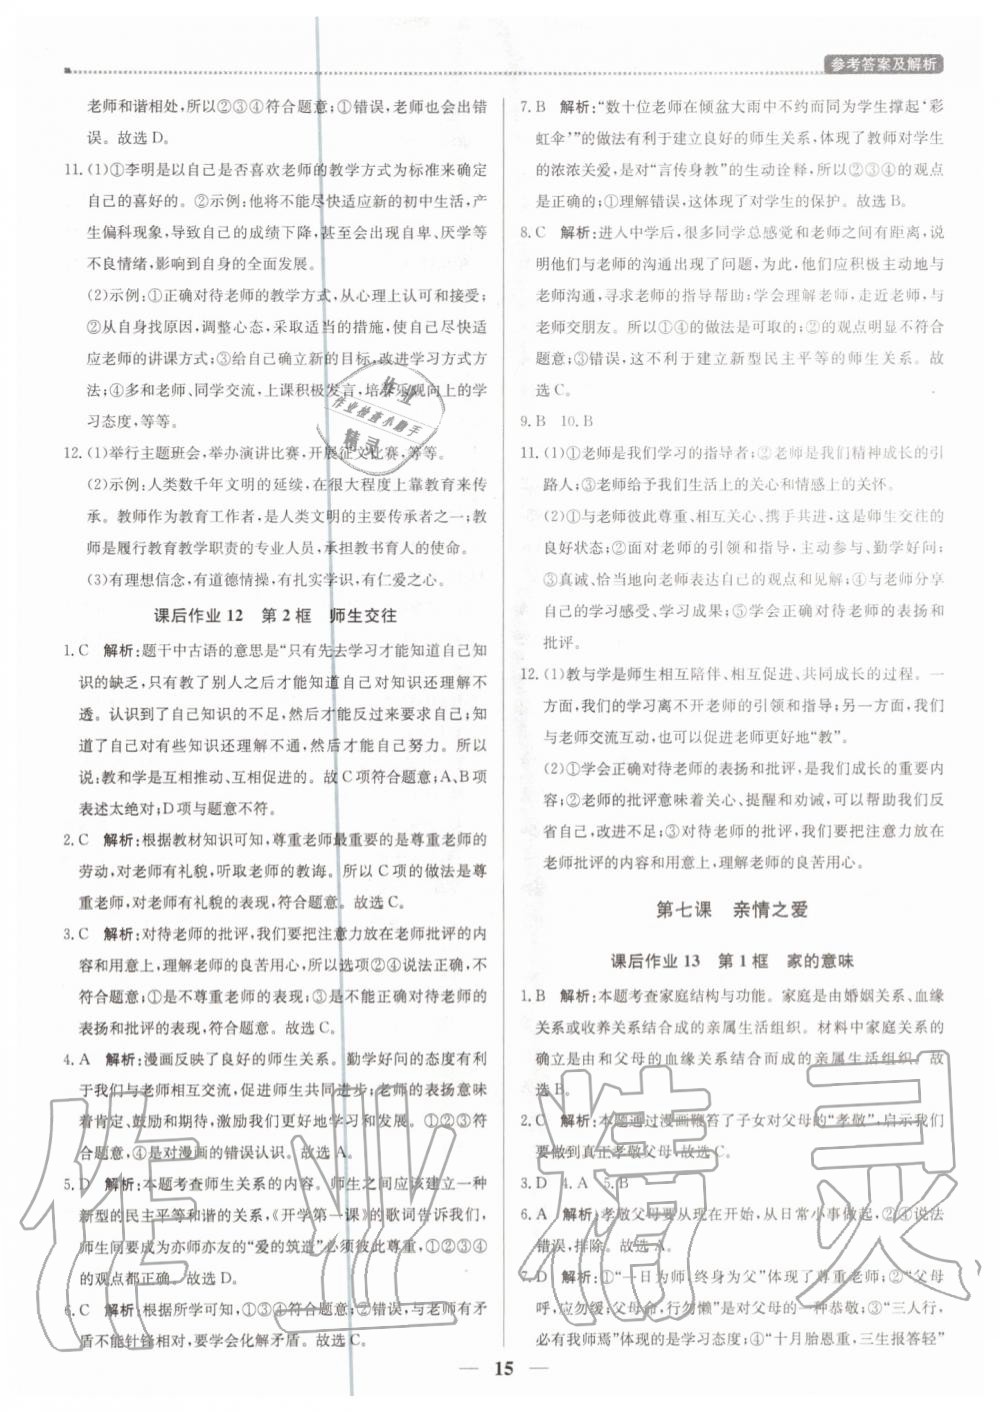 参考答案及解析
老师和谐相处,所以②③④符合题意;①错误,老师也会出错
误。故选 D。
11. (1)①李明是以自己是否喜欢老师的教学方式为标准来确定
自己的喜好的。②示例:他将不能尽快适应新的初中生活,产
生偏科现象,导致自己的成绩下降,甚至会出现自卑、厌学等
不良情绪,影响到自身的全面发展。
(2)示例:①正确对待老师的教学方式,从心理上认可和接受;
②从自身找原因,调整心态,采取适当的措施,使自己尽快适
应老师的讲课方式;③给自己确立新的目标,改进学习方式方
法;④多和老师、同学交流,上课积极发言,培养乐观向上的学
习态度,等等。
12. (1)举行主题班会,举办演讲比赛,开展征文比赛,等等。
(2)示例:人类数千年文明的延续,在很大程度上靠教育来传
承。教师作为教育工作者,是人类文明的主要传承者之一;教
师是履行教育教学职责的专业人员,承担教书育人的使命。
(3)有理想信念,有道德情操,有扎实学识,有仁爱之心。
课后作业 12 第 2 框 师生交往
1. C 解析:题干中古语的意思是“只有先去学习才能知道自己知
识的缺乏,只有教了别人之后才能知道自己对知识还理解不
透。认识到了自己知识的不足,然后才能反过来要求自己;知
道了自己对有些知识还理解不通,然后才能自己努力。所以
说:教和学是互相推动、互相促进的。故 C 项符合题意;A、B 项
表述太绝对;D 项与题意不符。
2. C 解析:根据教材知识可知,尊重老师最重要的是尊重老师的
劳动,对老师有礼貌,听取老师的教诲。所以 C 项符合题意;尊
重老师,对老师有礼貌的表现,符合题意。故选 C。
3. C 解析:对待老师的批评,我们要把注意力放在老师批评的内
容和用意上,理解老师的良苦用心,所以②④说法正确,不符
合题意;①是不尊重老师的表现;③是不能正确对待老师的表
扬和批评的表现,符合题意。故选 C。
4. A 解析:漫画反映了良好的师生关系。勤学好问的态度有利
于我们与老师相互交流,促进师生共同进步;老师的表扬意味
着肯定、鼓励和期待,激励我们更好地发展。①②③符合
题意,④是对漫画的错误认识。故选 A。
5. D 解析:本题考查师生关系的内容。师生之间应该建立一种
新型的民主平等和谐的关系,《开学第一课》的歌词告诉我们,
师生间要成为亦师亦友的“爱的筑造”必须彼此尊重,①②③④
的观点都正确。故选 D。
6. C 解析:根据所学可知,①③④符合题意;②错误,与老师有矛
盾不能针锋相对,要学会化解矛盾。故选 C。
7. B 解析:“数十位老师在倾盆大雨中不约而同为学生撑起‘彩
虹伞’”的做法有利于建立良好的师生关系,体现了教师对学生
的浓浓关爱,是对“言传身教”的生动诠释,所以②③④的观点
是正确的;①理解错误,这体现了对学生的保护。故选 B。
8. C 解析:进入中学后,很多同学总感觉和老师之间有距离,说
明他们与老师的沟通出现了问题,为此,他们应积极主动地与
老师沟通,寻求老师的指导帮助;学会理解老师,走近老师,与
老师交朋友。所以①④的做法是可取的;②的观点明显不符合
题意;③错误,这不利于建立新型民主平等的师生关系。故
选 C。
9. B 10. B
11. (1)①老师是我们学习的指导者;②老师是我们精神成长的引
路人;③老师给予我们生活上的关心和情感上的关怀。
(2)①与老师彼此尊重、相互关心、携手共进,这是师生交往的
良好状态;②面对老师的引领和指导,主动参与、勤学好问;
③真诚、恰当地向老师表达自己的观点和见解;④与老师分享
自己的学习感受、学习成果;⑤学会正确对待老师的表扬和
批评。
12. (1)教与学是师生相互陪伴、相互促进、共同成长的过程。一
方面,我们的学习离不开老师的引领和指导;另一方面,我们
与老师交流互动,也可以促进老师更好地“教”。
(2)①学会正确对待老师的表扬和批评,是我们成长的重要内
容;②老师的批评意味着关心、提醒和劝诫,可以帮助我们反
省自己,改进不足;③对待老师的批评,我们要把注意力放在
老师批评的内容和用意上,理解老师的良苦用心。
第七课 亲情之爱
课后作业 13 第 1 框 家的意味
1. B 解析:本题考查家庭结构与功能。家庭是由婚姻关系、血缘
关系或收养关系结合成的亲属生活组织。材料中家庭关系的
确立是由和父母的血缘关系结合而成的亲属生活组织。故
选 B。
2. C 解析:本题通过漫画鞭笞了子女对父母的“孝敬”,启示我们
要做到真正孝敬父母,故选 C。
3. D 4. A 5. B
6. A 解析:孝敬父母要从现在开始,从日常小事做起,②⑤说法
错误,排除。故选 A。
7. D 解析:①“一日为师,终身为父”体现了尊重老师;②“父母
呼,应勿缓;父母命,行勿懒”是对父母的一种恭敬;③“三人行,
必有我师焉”体现的是学习态度;④“十月胎恩重,三生报答轻”
15
作业
作业检查小助手
精灵
作业精灵